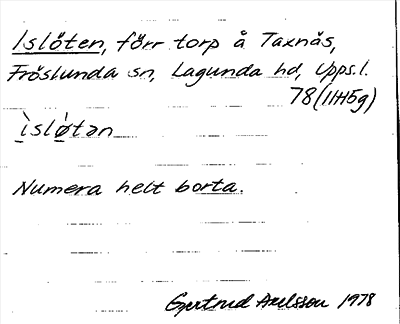 Islöten, förr torp å Taxnäs,
Fröslunda sn, Lagunda hd, Upps.l.
78(11H5g)
ìslø̀tən
Numera helt borta.
Gertrud Axelsson 1978